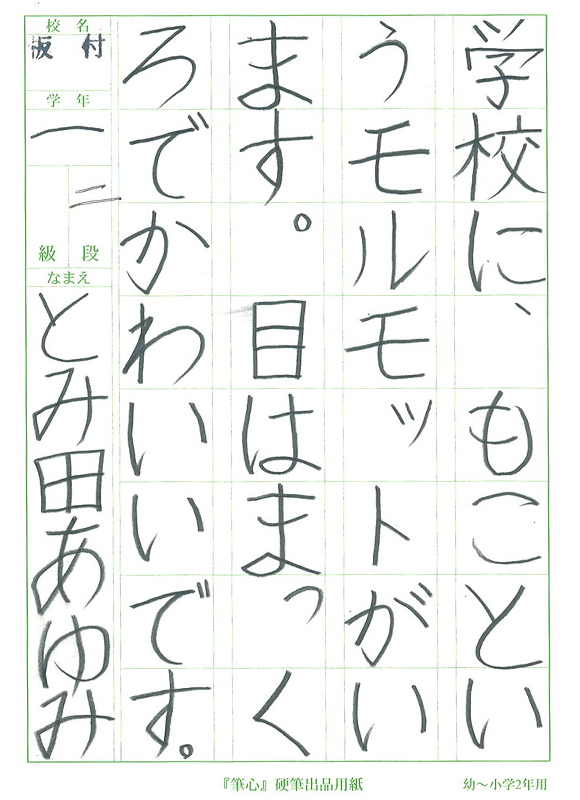 学校に、もことい
うモルモットがい
ます。目はまっく
ろでかわいいです。
校名
板付
学年
一
二
級段
なまえ
とみ田あゆみ
『筆心』硬筆出品用紙
幼〜小学2年用